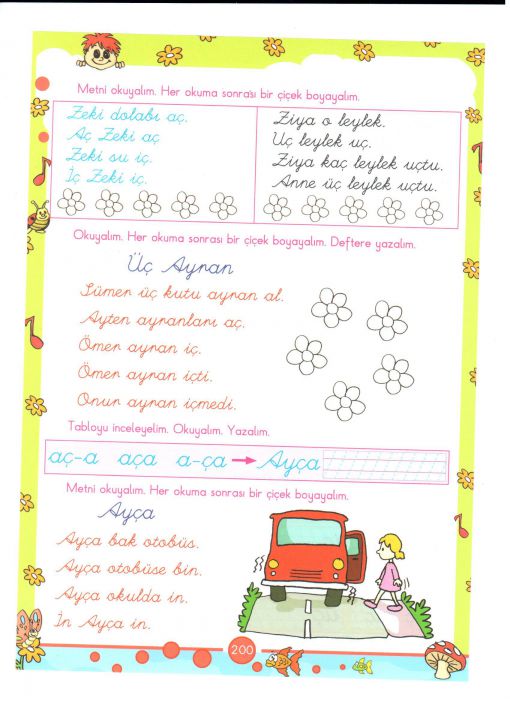 Metni okuyalım. Her okuma sonrası bir çiçek boyayalım.
Zeki dolabı aç.
Aç Zeki aç
Zeki su iç.
İç Zeki iç.
Ziya o leylek.
Uç leylek uç.
Ziya kaç leylek uçtu.
Anne üç leylek uçtu.
Okuyalım. Her okuma sonrası bir çiçek boyayalım. Deftere yazalım.
Üç Ayran
Sümer üç kutu ayran al.
Ayten ayranları aç.
Ömer ayran iç.
Ömer ayran içti.
Onur ayran içmedi.
Tabloyu inceleyelim. Okuyalım. Yazalım.
aç-a aça a-ça Ayça
Metni okuyalım. Her okuma sonrası bir çiçek boyayalım.
Ayça
Ayça bak otobüs.
Ayça otobüse bin.
Ayça okulda in.
İn Ayça in.
200